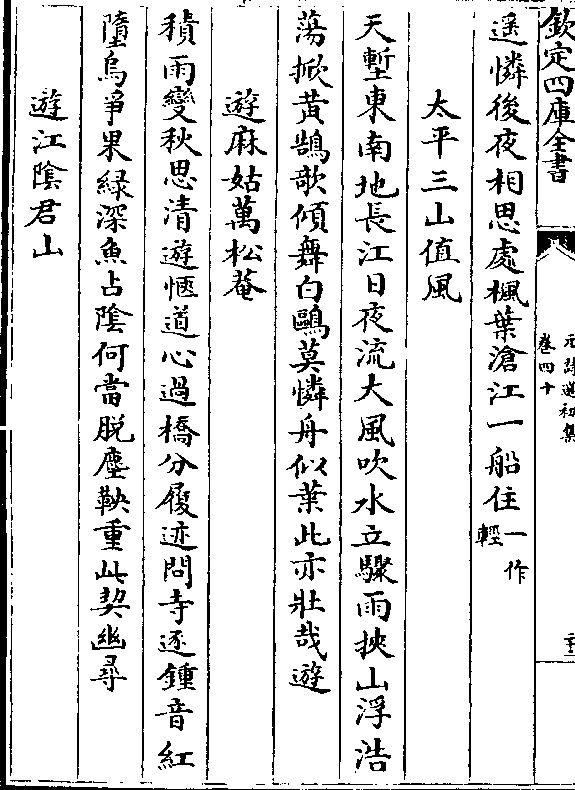 欽定四庫全書
元詩選初集
卷四十
遥憐後夜相思處楓葉滄江一船住一作輕
太平三山值風
天塹東南地長江日夜流大風吹水立驟雨挾山浮浩
蕩掀黄鵠歌傾舞白鷗莫憐舟似葉此亦壯哉遊
遊麻姑萬松菴
積雨變秋思清遊愜道心過橋分履迹問寺逐鍾音紅
墮烏爭果緑深魚占陰何當脱塵鞅重此契幽尋
遊江陰君山